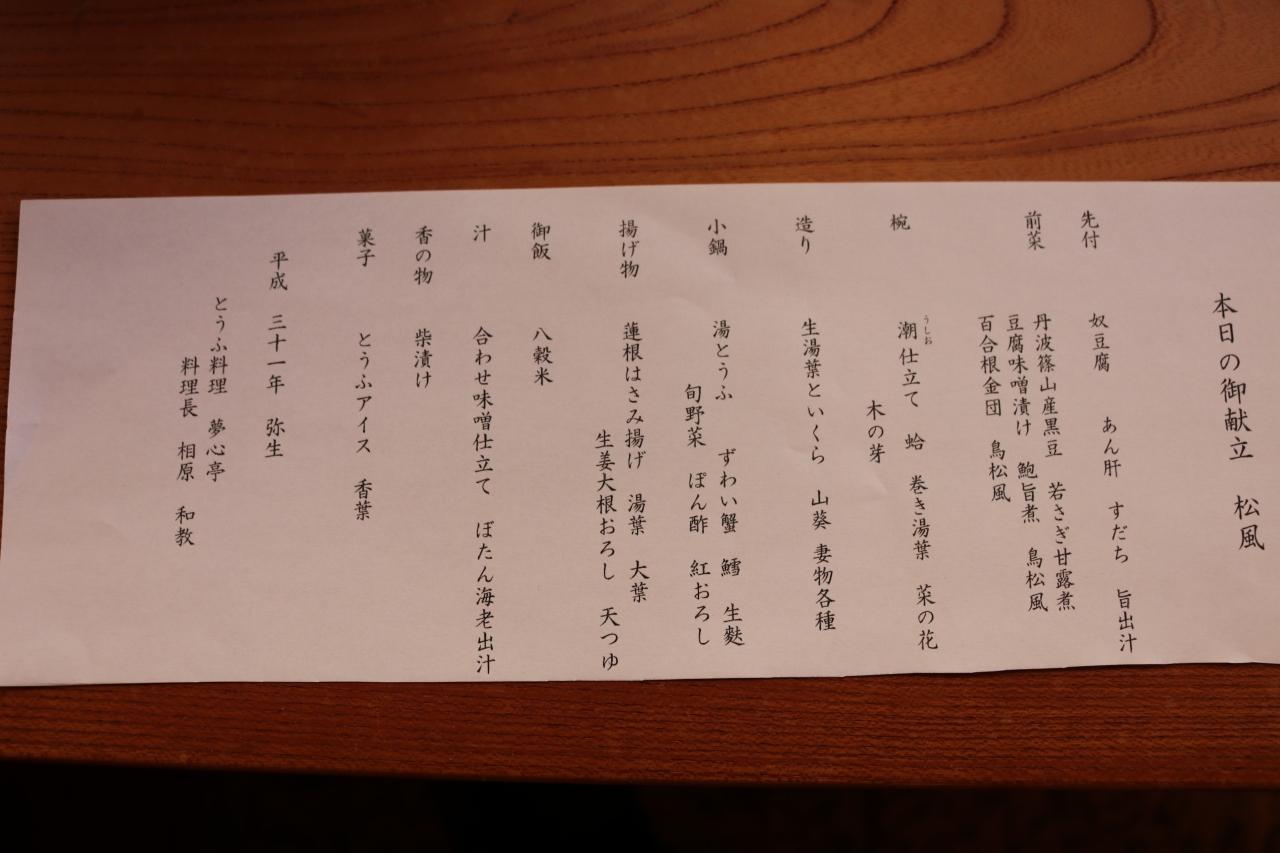 本日の御献立　松風
先付　奴豆腐　あん肝　すだち　旨出汁
前菜　丹波篠山産黒豆　若さぎ甘露煮
豆腐味噌漬け　鮑旨煮　鳥松風
百合根金団　鳥松風
椀　潮仕立て　蛤　巻き湯葉　菜の花
うしお
木の芽
造り　生湯葉といくら　山葵　妻物各種
小鍋　湯とうふ　ずわい蟹　鱈　生麩
旬野菜　ぽん酢　紅おろし
揚げ物　蓮根はさみ揚げ　湯葉　大葉
生姜大根おろし　天つゆ
御飯　八穀米
汁　合わせ味噌仕立て　ぼたん海老出汁
香の物　柴漬け
菓子　とうふアイス　香葉
平成　三十一年　弥生
とうふ料理　夢心亭
料理長　相原　和教